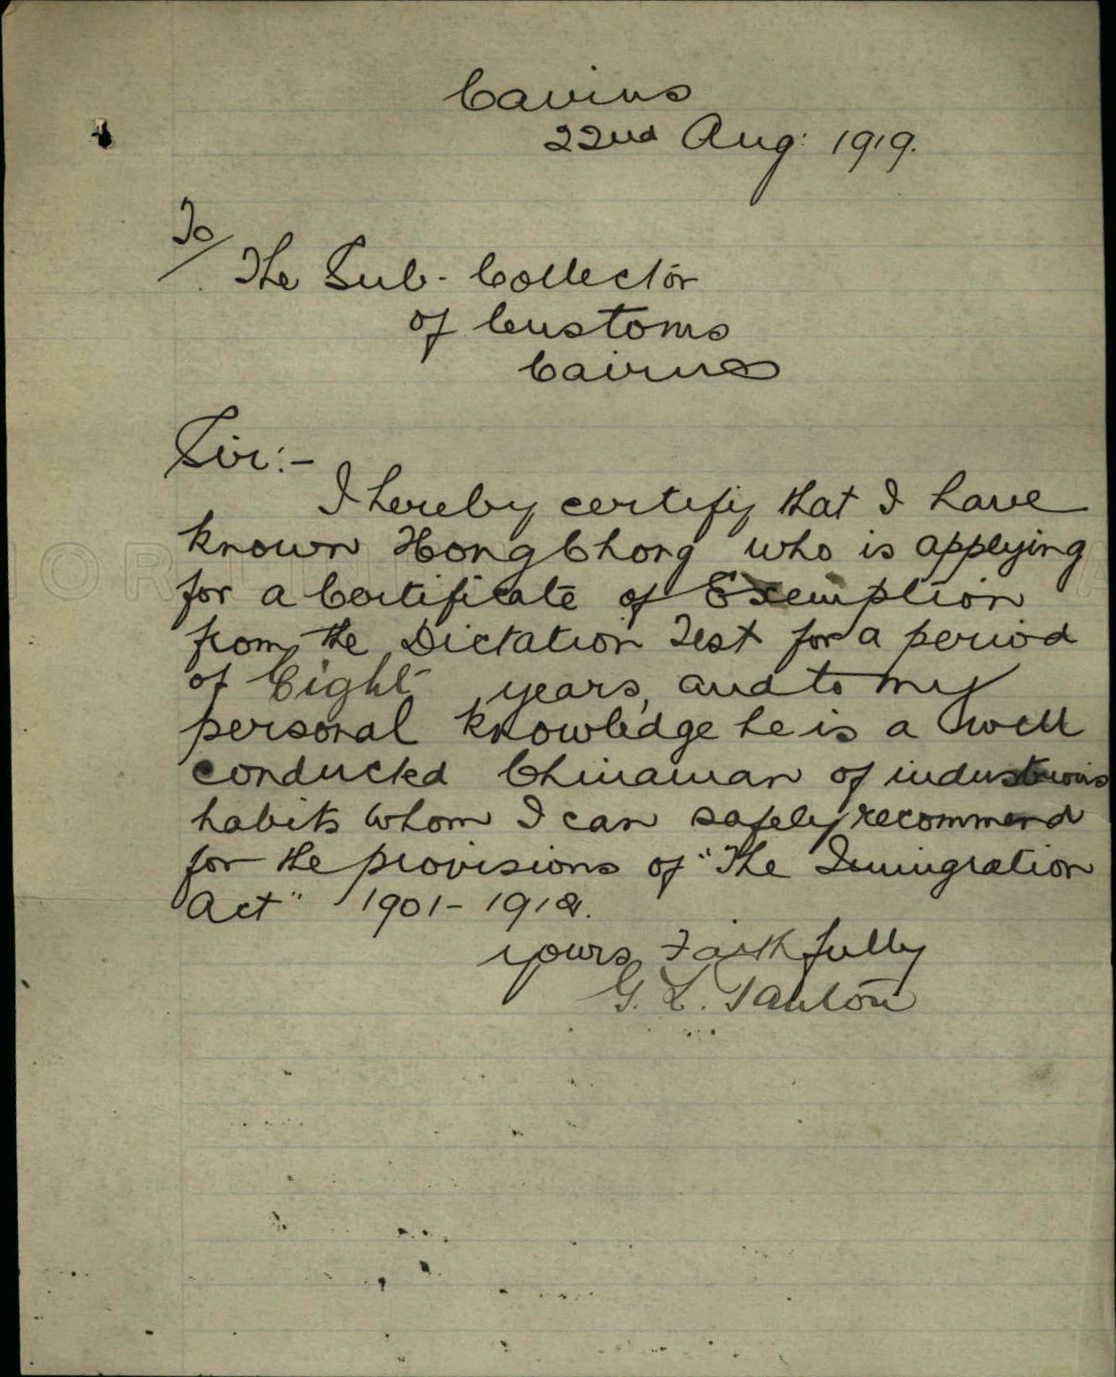 Cairns
22nd Aug: 1919.
To/
The Sub-Collector
of Customs
Cairns
Sir:-
I hereby certify that I have
known Hong Chong who is applying
for a Certificate of Exemption
from the Dictation Test for a period
of Eight years, and to my
personal knowledge he is a well
conducted Chinaman of industrious
habits whom I can safely recommend
for the provisions of "The Immigration
Act" 1901-1918.
yours Faithfully
G. L.